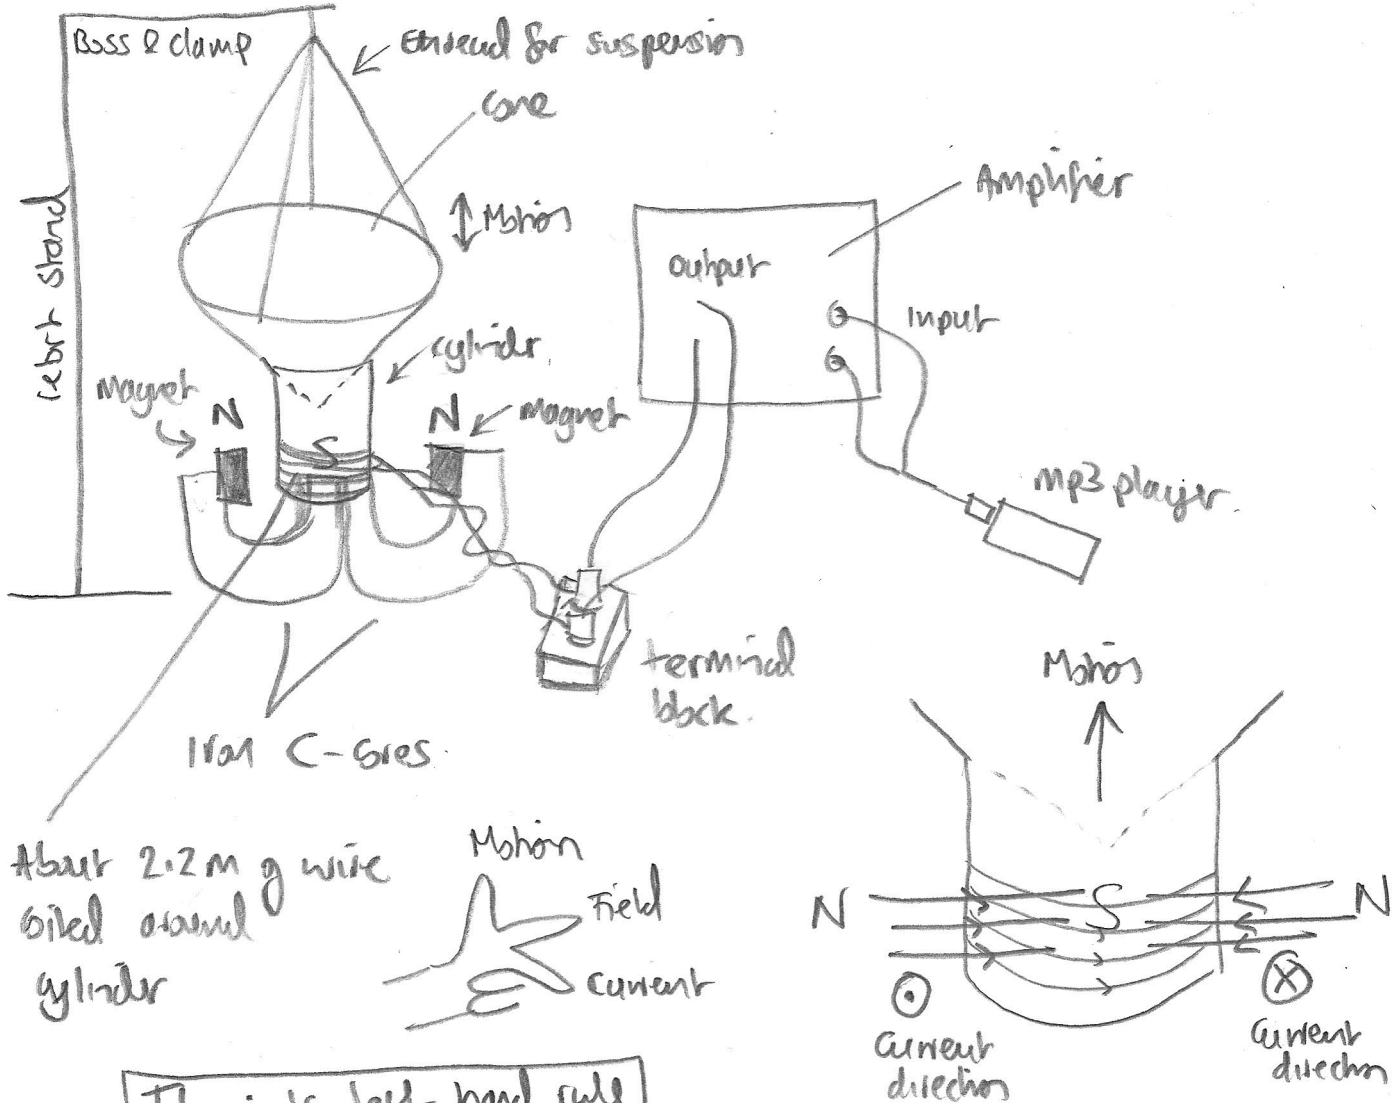 Boss & clamp
thread for suspension
cone
Motion
Amplifier
output
Input
retort stand
cylinder
Magnet
N
N
Magnet
S
mp3 player
terminal
block.
Iron C-cores.
Motion
About 2.2m of wire
coiled around
cylinder
Motion
Field
Current
N
S
N
Current
direction
Current
direction
left-hand rule